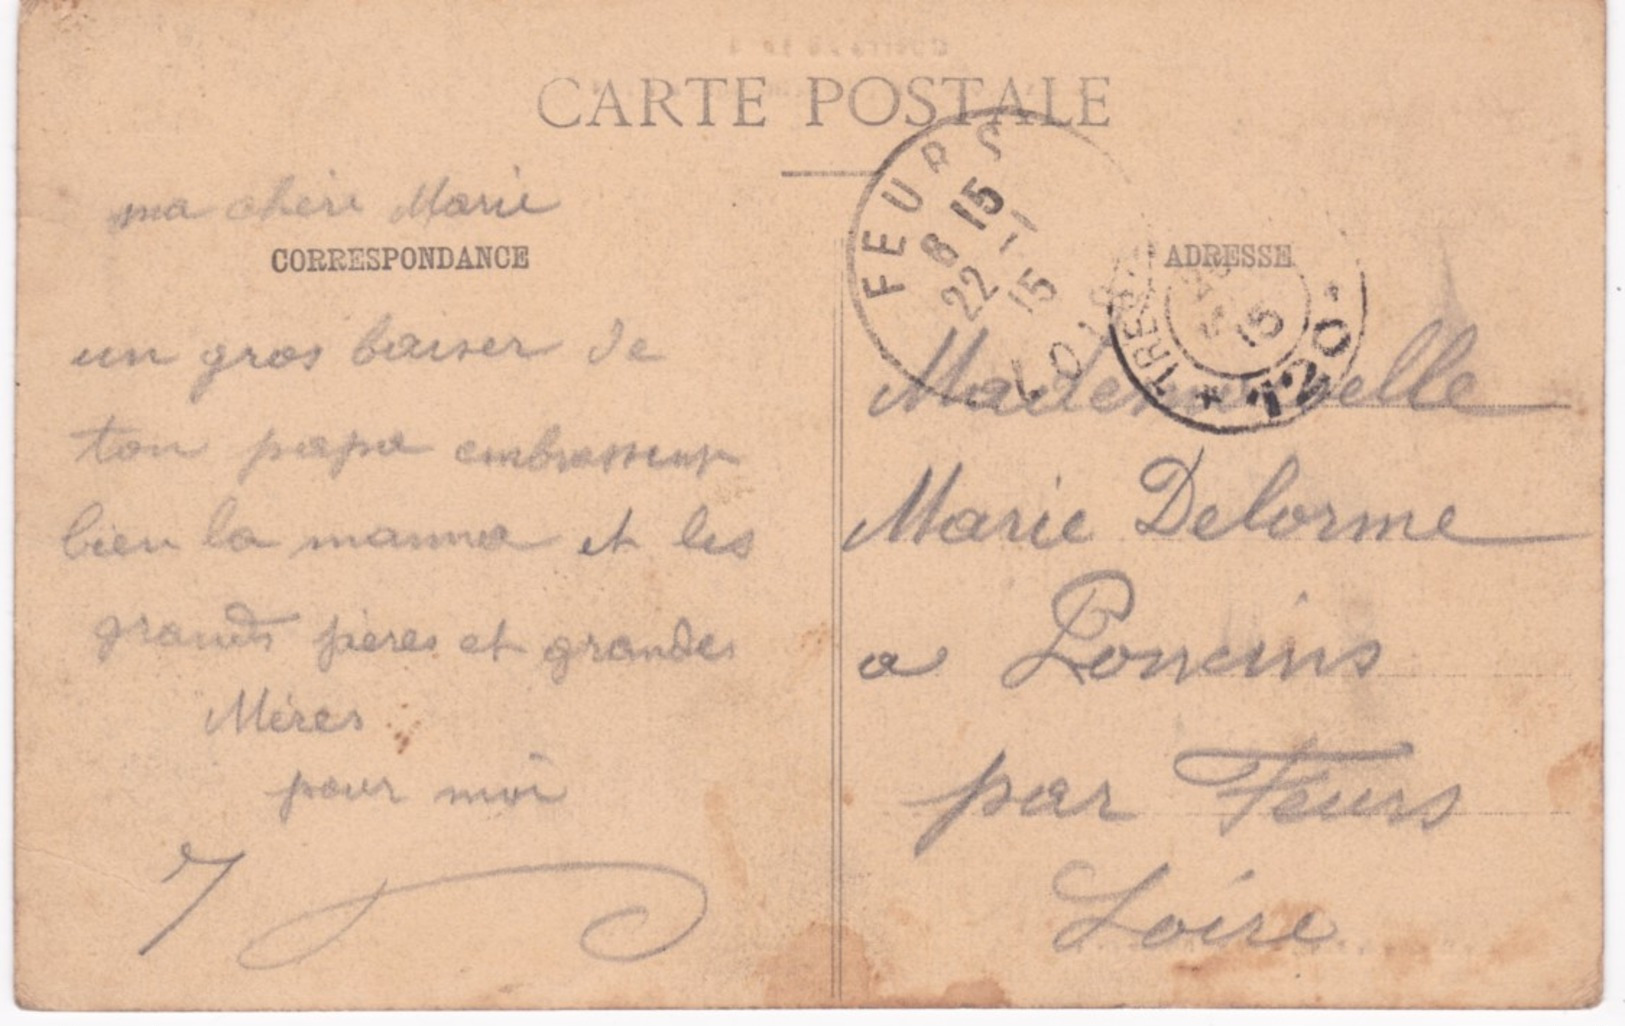 CARTE POSTALE
ma chère Marie
CORRESPONDANCE
un gros baiser de
ton papa
bien la mama et les
grands pères et grandes
Mères
pour moi
FEURS
8 15
22 - 1
15
LOIRE
ADRESSE
TRESOR
15
Mademoiselle
Marie Delorme
a Poncins
par Feurs
Loire